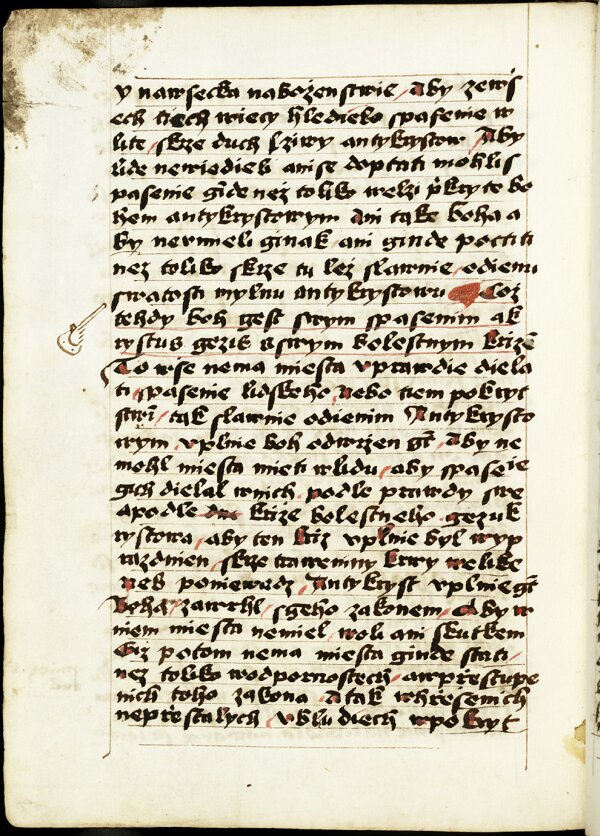 y nawsecka nabozenstwie / Aby zewś
ech tiech wiecy hledielo spasenie w
lite / skrze duch lziwy antykrystow / Aby
lide newiedieli anise doptati mohli s
pasenie gīde nez toliko welzi pkryte bo
hem antykrystowym Ani take boha a
by nevmeli ginak / ani ginde poctiti
nez toliko skrze tu lez slawnie / odienu
swatosti mylnu antykrystowu Coz
tehdy boh gest swym spasenim a k
rystus gezis s swym bolestnym krizē
To wse nema miesta vprawdie diela
ti / spasenie lidskeho / nebo tiem pokryt
stwī / tak slawnie odienim Antykrysto
wym / vplnie boh odwrzen gt / Aby ne
mohl miesta mieti wlidu / aby spaseie
gich dielal wnich / podle prawdy swe
a podle krize bolestneho / gezuk
rystowa / aby ten kriz vplnie byl wyp
razdnien / skrze traweniny krwy welike
neb poniewadz / Antykryst vplnie gt
Boha / zawrhl / sgeho zakonem / Aby w
niem miesta nemiel / woli ani skutkem
Giz potom nema miesta ginde stati /
nez toliko wodpornostech / awprestupe
nich toho zakona / A tak whresenich
neprestalych / vbludiech wpokryt